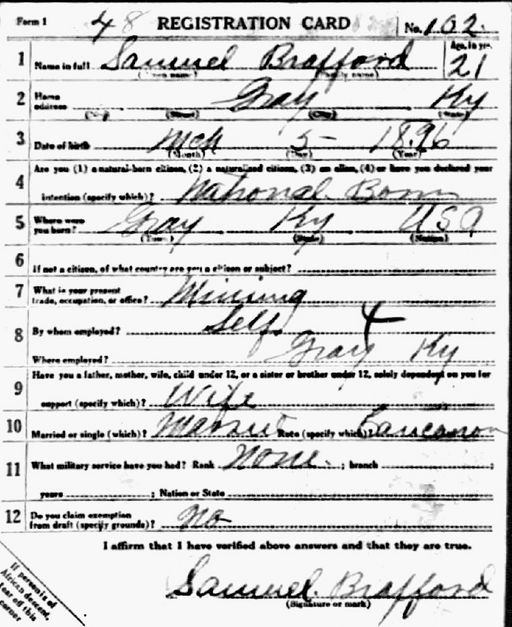 Form 1 48 REGISTRATION CARD No. 102.
1 Name in full Samuel Brafford Age, in yrs. 21
(Given name) (Family name)
2 Home address Gray Ky
(No.) (Street) (City) (State)
3 Date of birth Mch 5 - 1896
(Month) (Day) (Year)
Are you (1) a natural-born citizen, (2) a naturalized citizen, (3) an alien, (4) or have you declared your
4 intention (specify which)? National Born
5 Where were you born? Gray Ky USA
(Town) (State) (Nation)
6 If not a citizen, of what country are you a citizen or subject?
7 What is your present trade, occupation, or office? Mining
8 By whom employed? Self 4
Where employed? Gray Ky
9 Have you a father, mother, wife, child under 12, or a sister or brother under 12, solely dependent on you for
support (specify which)? Wife
10 Married or single (which)? Married Race (specify which)?
11 What military service have you had? Rank None. ; branch ;
years ; Nation or State
12 Do you claim exemption from draft (specify grounds)? No
I affirm that I have verified above answers and that they are true.
Samuel Brafford
(Signature or mark)
If person is of
African descent,
tear off this
corner